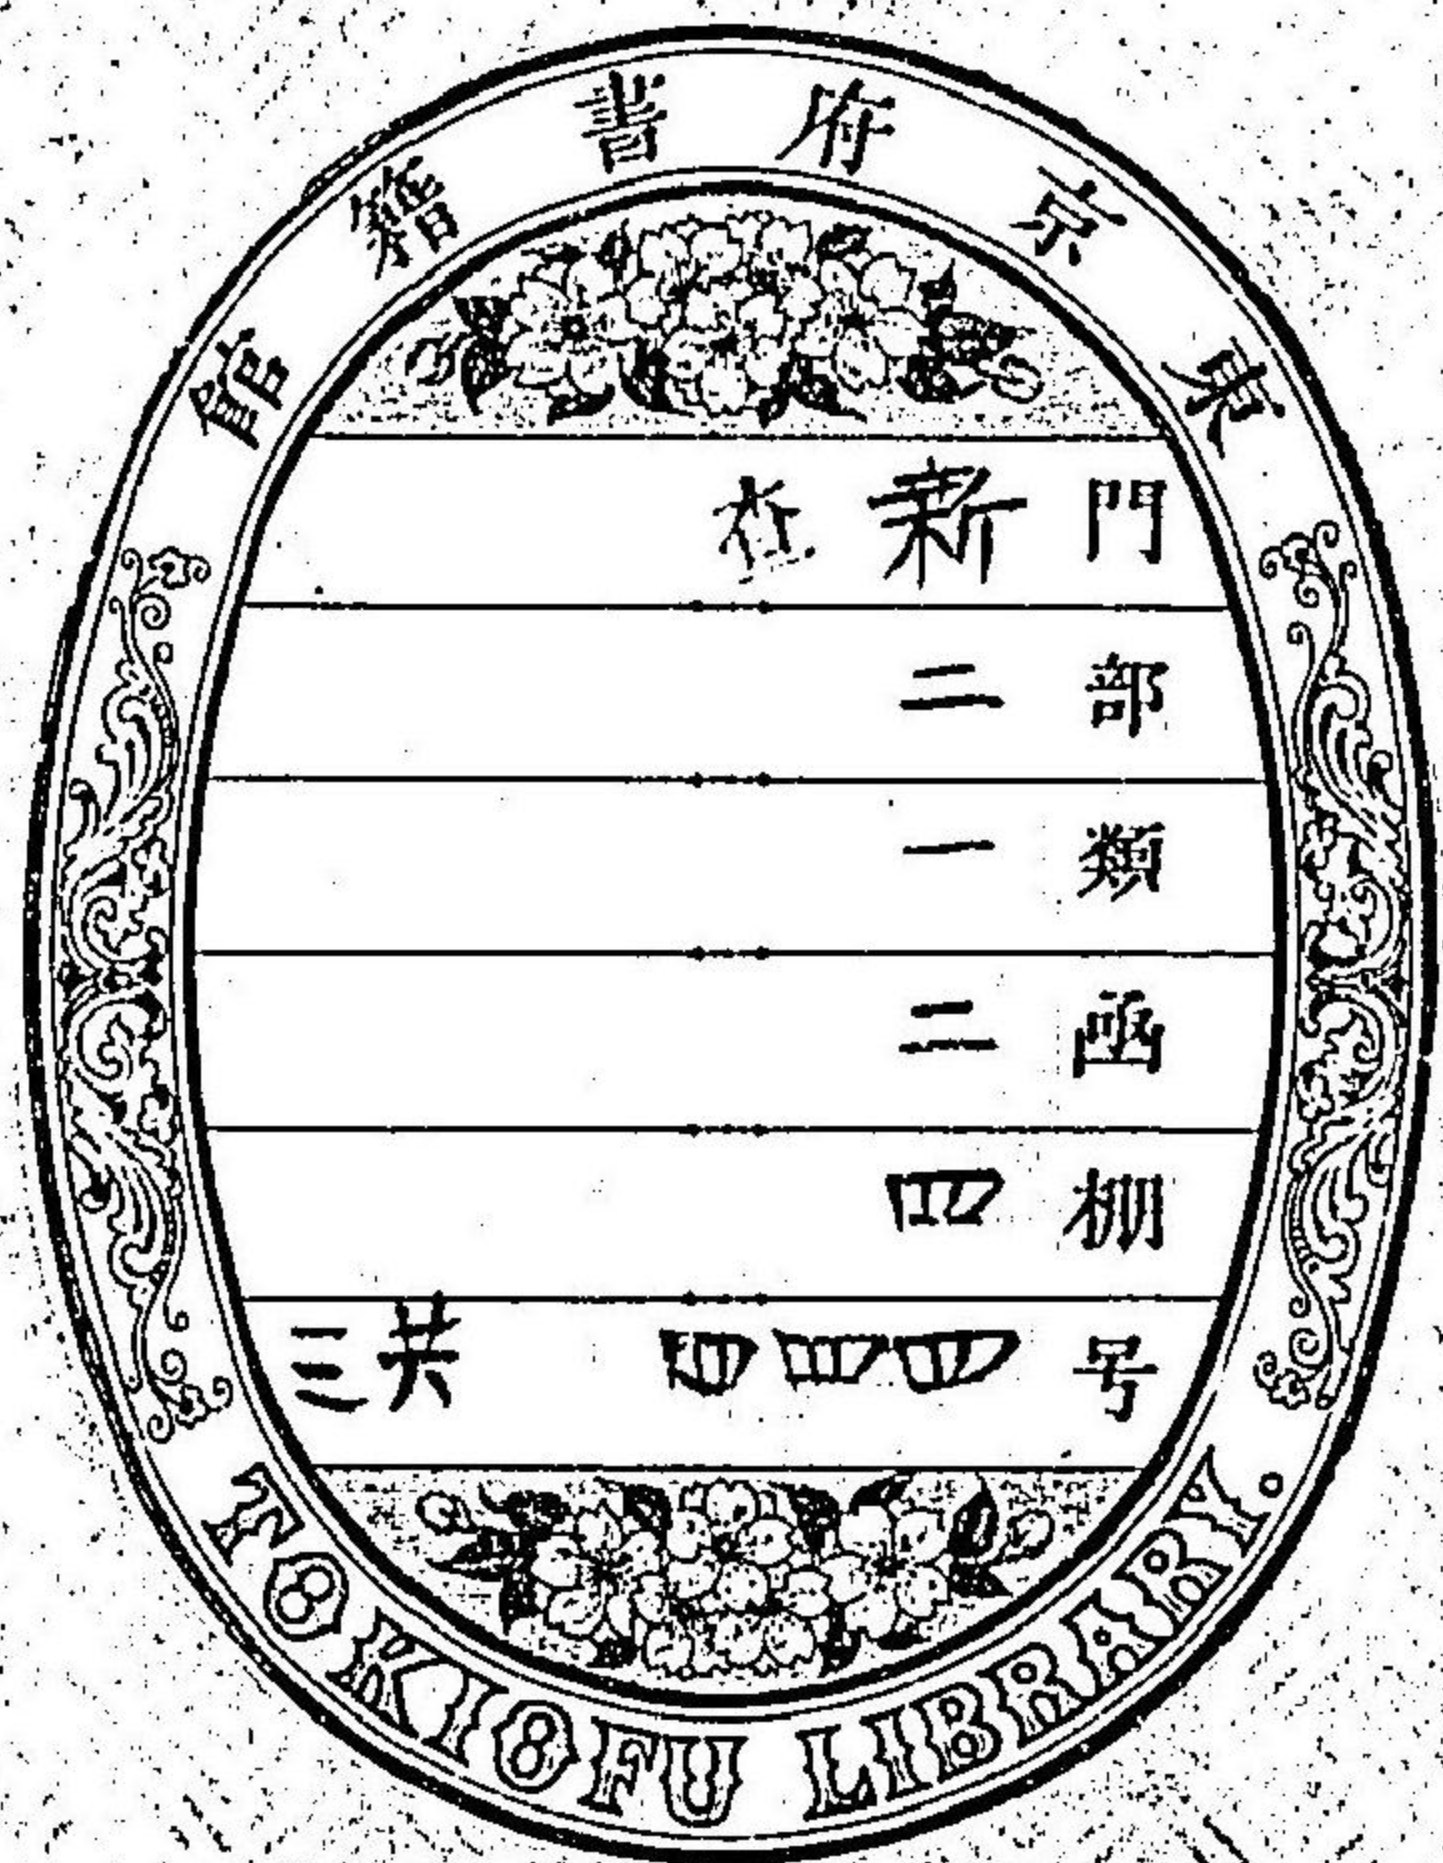 東京府書籍館
門 新
部 二
類 一
凾 二
棚 四
号 四四四 共三
TOKIOFU LIBRARY.